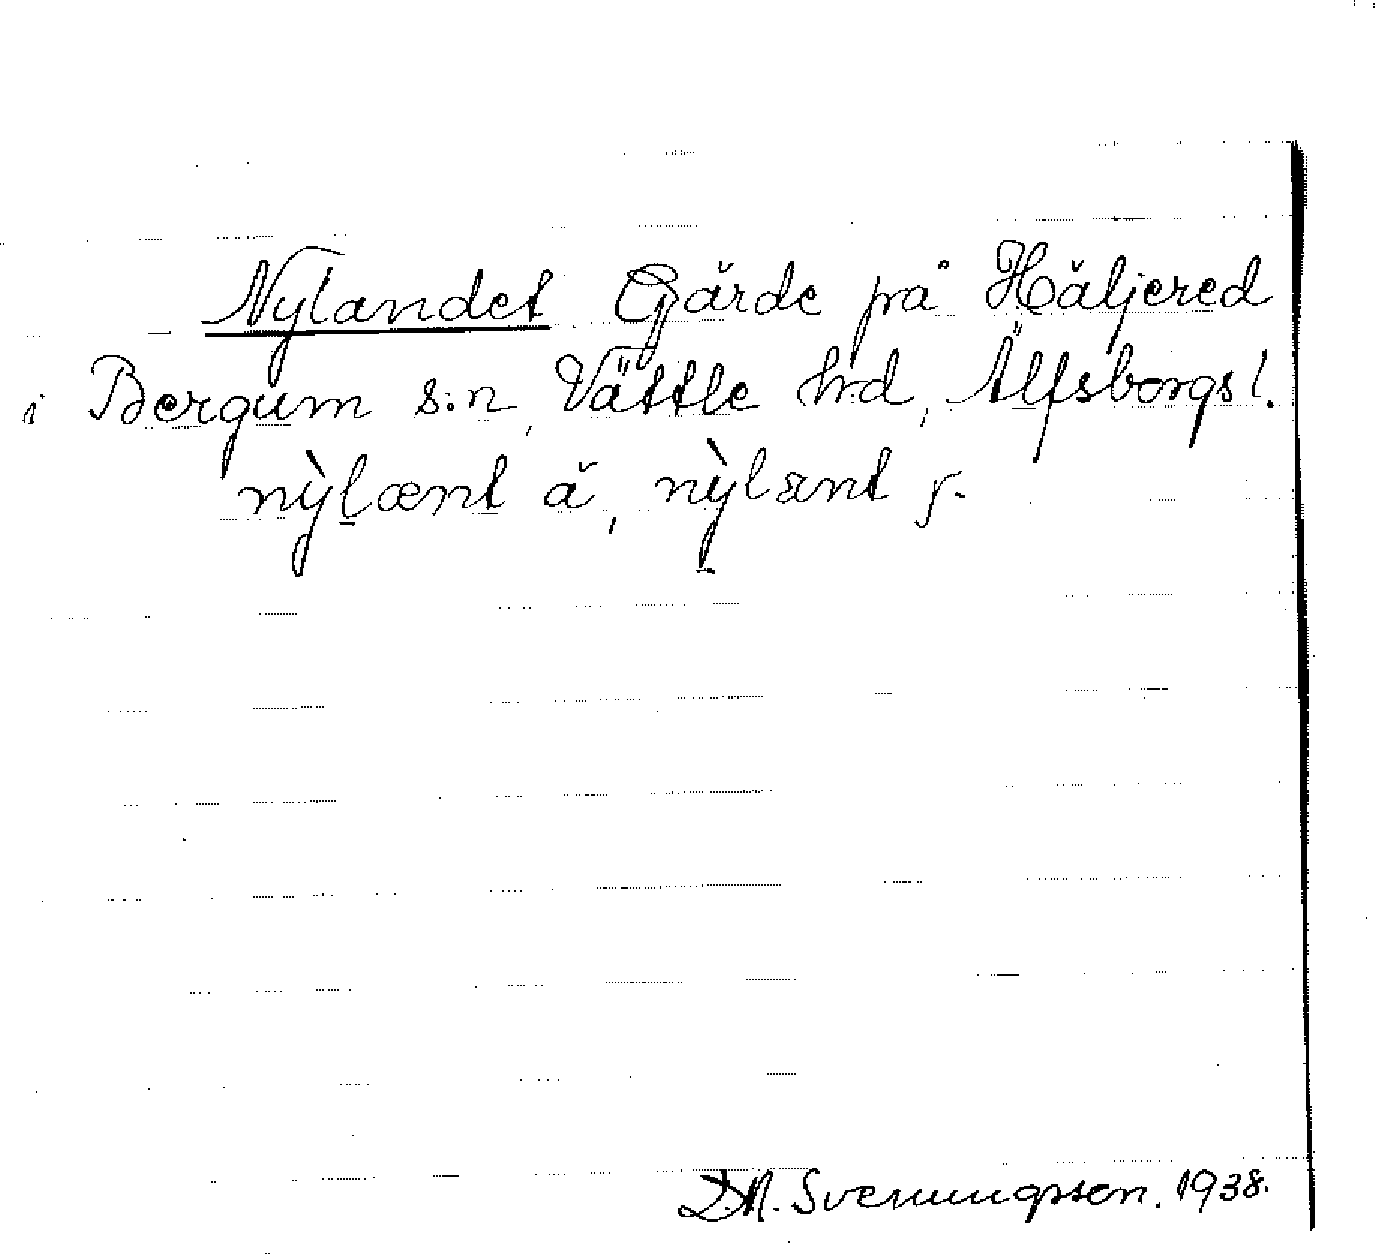 Nylandet Gärde på Häljered
i Bergum s:n, Vättle hd, Älfsborgs l.
nỳlænt ä, nỳlænt y.
D.A. Svenningsson. 1938.